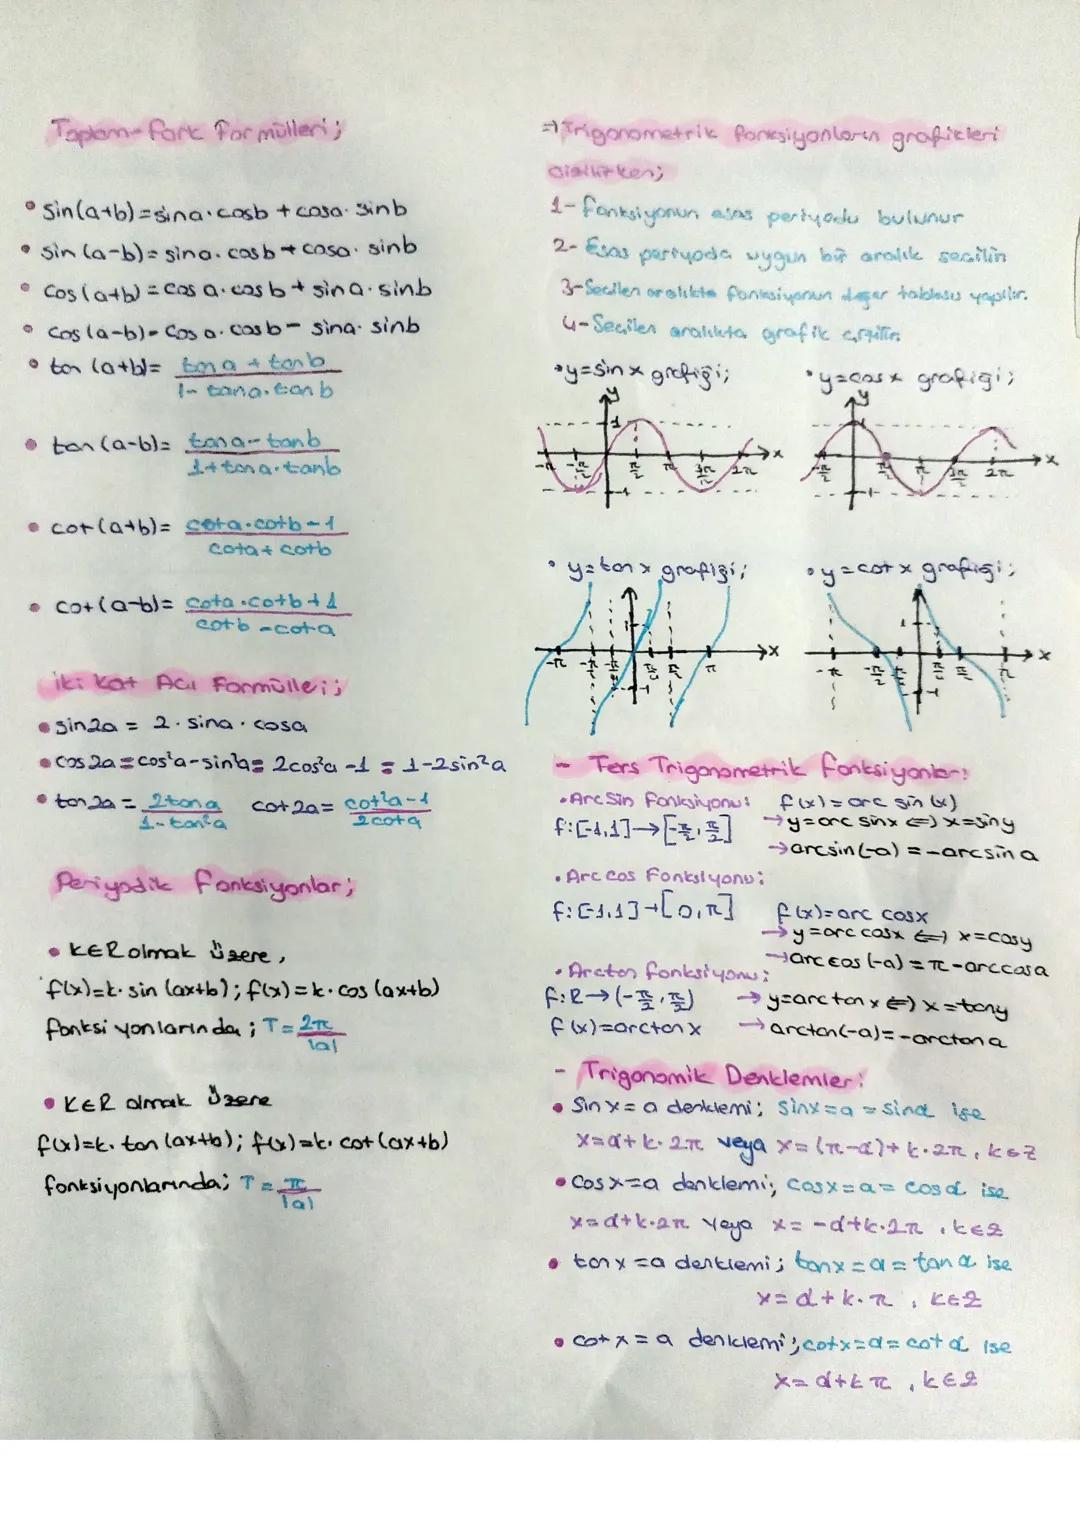 Toplam-fark formülleri;
• sin(a+b)=sina·cosb+cosa·sinb
• sin(a-b)=sina·cosb+cosa·sinb
• cos(a+b)=cosa·cosb+sina·sinb
• cos(a-b)=cosa·cosb-sina·sinb
• tan(a+b)= tana+tanb
1-tana·tanb
• tan(a-b)= tana-tanb
1+tana·tanb
• cot(a+b)= cota·cotb-1
cota+cotb
• cot(a-b)= cota·cotb+1
cotb-cota
iki kat Açı Formülleri;
• sin2a = 2·sina·cosa
• cos2a=cos²a-sin²a=2cos²a-1=1-2sin²a
• tan2a= 2tana cot2a= cot²a-1
1-tan²a 2cota
Periyodik fonksiyonlar;
• KER olmak üzere,
f(x)=k·sin(ax+b); f(x)=k·cos(ax+b)
fonksiyonlarında; T= 2π
|a|
• KER olmak üzere
f(x)=k·tan(ax+b); f(x)=k·cot(ax+b)
fonksiyonlarında; T= π
|a|
⇒ Trigonometrik fonksiyonların grafikleri
çizilirken;
1- fonksiyonun esas periyodu bulunur
2- Esas periyoda uygun bir aralık seçilin
3- Seçilen aralıkta fonksiyonun değer tablosu yapılır.
4- Seçilen aralıkta grafik çizilir
• y=sinx grafiği; • y=cosx grafiği;
y y
1
-π -π/2 π/2 π 3π/2 2π x -π/2 π/2 π 3π/2 2π x
-1 -1
• y=tanx grafiği; • y=cotx grafiği;
1 1
-π π x -π -π/2 x
-1 -1
- Ters Trigonometrik fonksiyonlar:
• Arcsin fonksiyonu: f(x)=arc sin(x)
f:[-1,1]→[-π/2,π/2] →y=arc sinx ⇔ x=siny
→arcsin(-a)=-arcsina
• Arccos Fonksiyonu;
f:[-1,1]→[0,π] f(x)=arc cosx
→y=arc cosx ⇔ x=cosy
→arccos(-a)=π-arccosa
• Arctan fonksiyonu;
f:R→(-π/2,π/2) →y=arctanx ⇔ x=tany
f(x)=arctanx →arctan(-a)=-arctana
- Trigonomik Denklemler:
• Sinx=a denklemi; sinx=a=sinα ise
x=α+k·2π veya x=(π-α)+k·2π, k∈Z
• Cosx=a denklemi; cosx=a=cosα ise
x=α+k·2π veya x=-α+k·2π, k∈Z
• tanx=a denklemi; tanx=a=tanα ise
x=α+k·π, k∈Z
• cotx=a denklemi; cotx=a=cotα ise
x=α+kπ, k∈Z